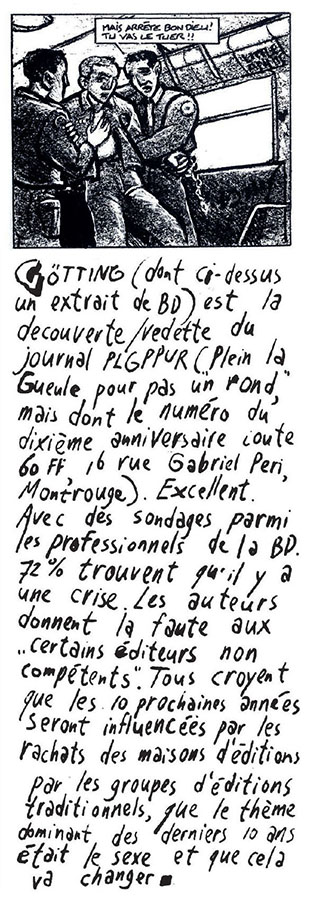 MAIS ARRÊTE BON DIEU!
TU VAS LE TUER!!
GÖTTING (dont ci-dessus
un extrait de BD) est la
decouverte/vedette du
journal PLGPPUR (Plein la
Gueule, pour pas un "rond,"
mais dont le numéro du
dixième anniversaire coute
60 FF, 16 rue Gabriel Peri,
Montrouge). Excellent.
Avec des sondages parmi
les professionnels de la BD.
72% trouvent qu'il y a
une crise. Les auteurs
donnent la faute aux
„certains éditeurs non
compétents". Tous croyent
que les 10 prochaines années
seront influencéés par les
rachats des maisons d'éditions
par les groupes d'éditions
traditionnels, que le thème
dominant des derniers 10 ans
était le sexe et que cela
va changer ■